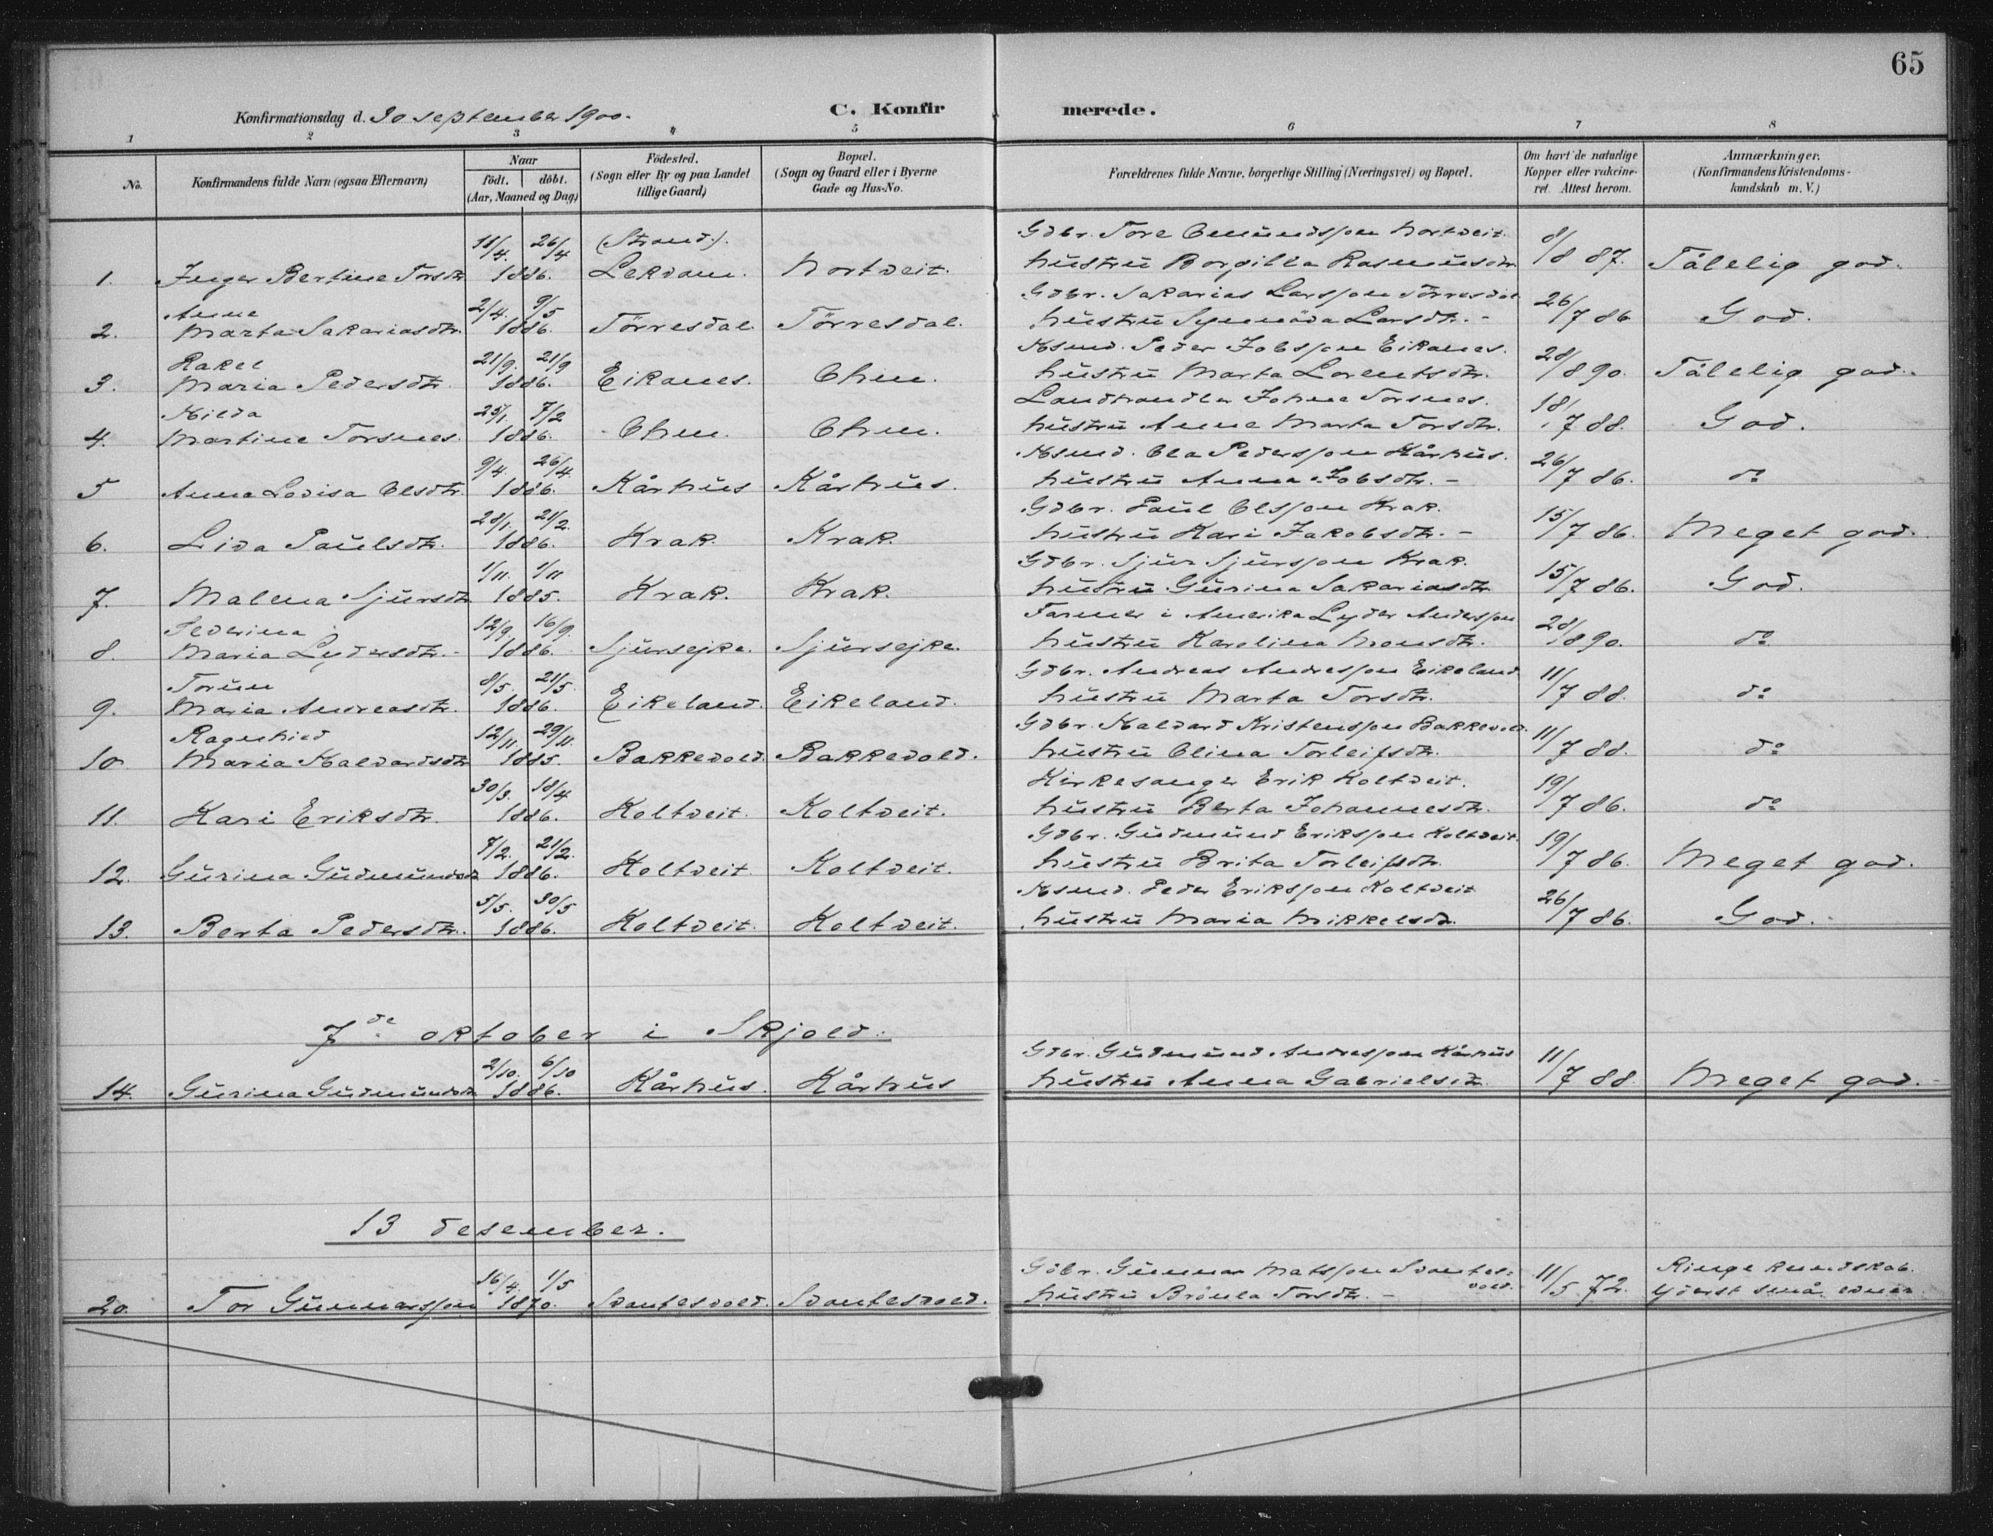 65
Konfirmationsdag d. 30 september 1900.
C. Konfirmerede.
1 2 3 4 5 6 7 8
No.
Konfirmandens fulde Navn (ogsaa Efternavn)
Naar
födt. döbt.
(Aar, Maaned og Dag)
Födested.
(Sogn eller By og paa Landet
tillige Gaard)
Bopæl.
(Sogn og Gaard eller i Byerne
Gade og Hus-No.
Forældrenes fulde Navne, borgerlige Stilling (Næringsvei) og Bopæl.
Om havt de naturlige
Kopper eller vakcine-
ret. Attest herom.
Anmærkninger.
(Konfirmandens Kristendoms-
kundskab m. V.)
18/4. 26/4 (Strand). Gdbr. Tore Omundsson Nortveit.
1. Inger Bertine Torsdtr. 1886. Lekvam. Nortveit. hustru Borgilla Rasmusdtr. 8/8 87. Tålelig god.
Anne 2/4. 9/5 Gdbr. Sakarias Larsson Törresdal
2. Marta Sakariasdtr. 1886. Törresdal. Törresdal. hustru Synnöva Larsdtr. - 26/7 86 God.
Rakel 21/9. 21/9 Hsmd. Peder Jobsson Eikanes.
3. Maria Pedersdtr. 1886. Eikanes. Ohm. hustru Marta Lorentsdtr. 28/8 90. Tålelig god.
Hilda 25/1. 7/2 Landhandler Johne Torsnes.
4. Martine Torsnes. 1886. Ohm. Ohm. hustru Anne Marta Torsdtr. 18/7 88. God.
9/4. 26/4. Hsmd. Ola Pedersson Kårhus.
5 Anna Lovisa Olsdtr. 1886. Kårhus Kårhus. hustru Anna Jobsdtr. - 26/7 86. do
28/1. 21/2. Gdbr. Paul Olsson Krak.
6. Lida Paulsdtr. 1886. Krak. Krak. hustru Kari Jakobsdtr. - 15/7 86. Meget god.
1/11. 1/11 Gdbr. Sjur Sjursson Krak.
7. Malena Sjursdtr. 1885. Krak. Krak. hustru Gurina Sakariasdtr. 15/7 86. God.
Federina 12/9. 16/9. Farmer i Amerika Lyder Andersson
8. Maria Lydersdtr. - 1886. Sjursejke. Sjursejke. hustru Karolina Monsdtr. 28/8 90. do
Torun 8/5. 21/5. Gdbr. Andreas Andresson Eikeland.
9. Maria Andreasdtr. 1886. Eikeland. Eikeland. hustru Marta Torsdtr. 11/7 88. do
Ragnhied 12/11. 29/11. Gdbr. Halvard Kristensson Bakkevold.
10. Maria Halvardsdtr. 1885. Bakkevold. Bakkevold. hustru Olina Torleifsdtr. 11/7 88. do
30/3. 18/4 Kirkesanger Erik Holtveit.
11. Kari Eriksdtr. 1886. Holtveit. Holtveit. hustru Berta Johannesdtr. 19/7 86. do
7/2. 21/2. Gdbr. Gudmund Eriksson Holtveit.
12. Gurina Gudmundsdtr 1886. Holtveit Holtveit. hustru Brita Torleifsdtr. 19/7 86. Meget god.
5/5. 30/5 Hsmd. Peder Eriksson Holtveit
13. Berta Pedersdtr. 1886. Holtveit. Holtveit. hustru Maria Mikkelsdtr. 26/7 86. God.
7de oktober i Skjold.
2/10. 6/10 Gdbr. Gudmund Andresson Kårhus
14. Gurina Gudmundsdtr 1886. Kårhus. Kårhus hustru Anna Gabrielsdtr. 11/7 88. Meget god.
13 desember.
16/4. 1/5 Gdbr. Gunnar Matsson Svantes-
vold. Ringe kundskab.
20. Tor Gunnarsson 1870. Svantesvold. Svantesvold. hustru Brönla Torsdtr. - 11/5 72. Yderst små evner.